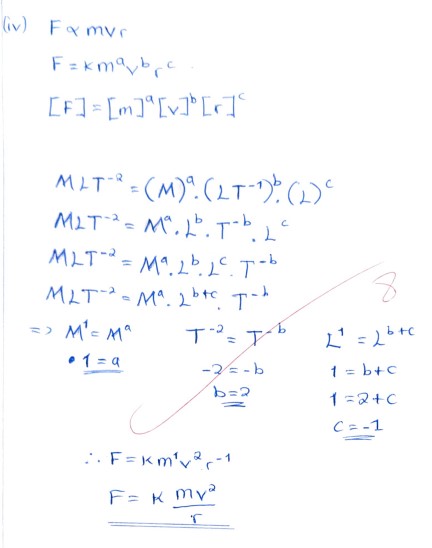 (iv) F ∝ mvr
F = k mᵃ vᵇ rᶜ.
[F] = [m]ᵃ [v]ᵇ [r]ᶜ
MLT⁻² = (M)ᵃ. (LT⁻¹)ᵇ. (L)ᶜ
MLT⁻² = Mᵃ. Lᵇ. T⁻ᵇ. Lᶜ
MLT⁻² = Mᵃ. Lᵇ. Lᶜ. T⁻ᵇ
MLT⁻² = Mᵃ. Lᵇ⁺ᶜ. T⁻ᵇ
8
=> M¹ = Mᵃ T⁻² = T⁻ᵇ L¹ = Lᵇ⁺ᶜ
• 1 = a -2 = -b 1 = b+c
b = 2 1 = 2+c
c = -1
∴ F = k m¹ v² r⁻¹
F = k mv²/r